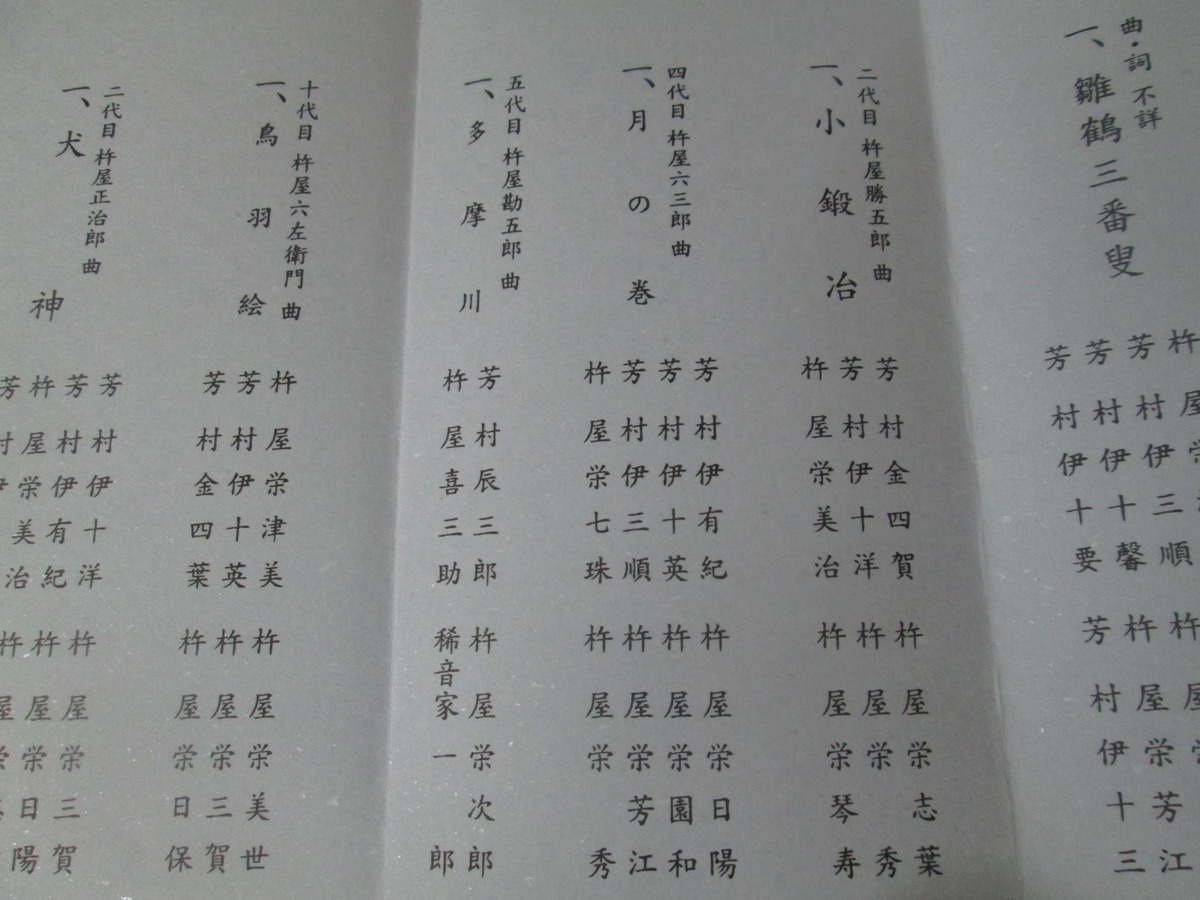 曲・詞 不詳
一、雛鶴三番叟
杵屋
芳村伊三順
芳村伊十馨
芳村伊十要
杵屋
杵屋栄芳江
芳村伊十三
二代目 杵屋勝五郎 曲
一、小鍛冶
芳村金四賀
芳村伊十洋
杵屋栄美治
杵屋栄志葉
杵屋栄秀
杵屋栄琴寿
四代目 杵屋六三郎 曲
一、月の巻
芳村伊有紀
芳村伊十英
芳村伊三順
杵屋栄七珠
杵屋栄日陽
杵屋栄園和
杵屋栄芳江
杵屋栄秀
五代目 杵屋勘五郎 曲
一、多摩川
芳村辰三郎
杵屋喜三助
杵屋栄次郎
稀音家一郎
十代目 杵屋六左衛門 曲
一、鳥羽絵
杵屋栄津美
芳村伊十英
芳村金四葉
杵屋栄美世
杵屋栄三賀
杵屋栄日保
二代目 杵屋正治郎 曲
一、犬神
芳村伊十洋
芳村伊有紀
杵屋栄美治
芳村伊
杵屋栄三賀
杵屋栄日陽
杵屋栄